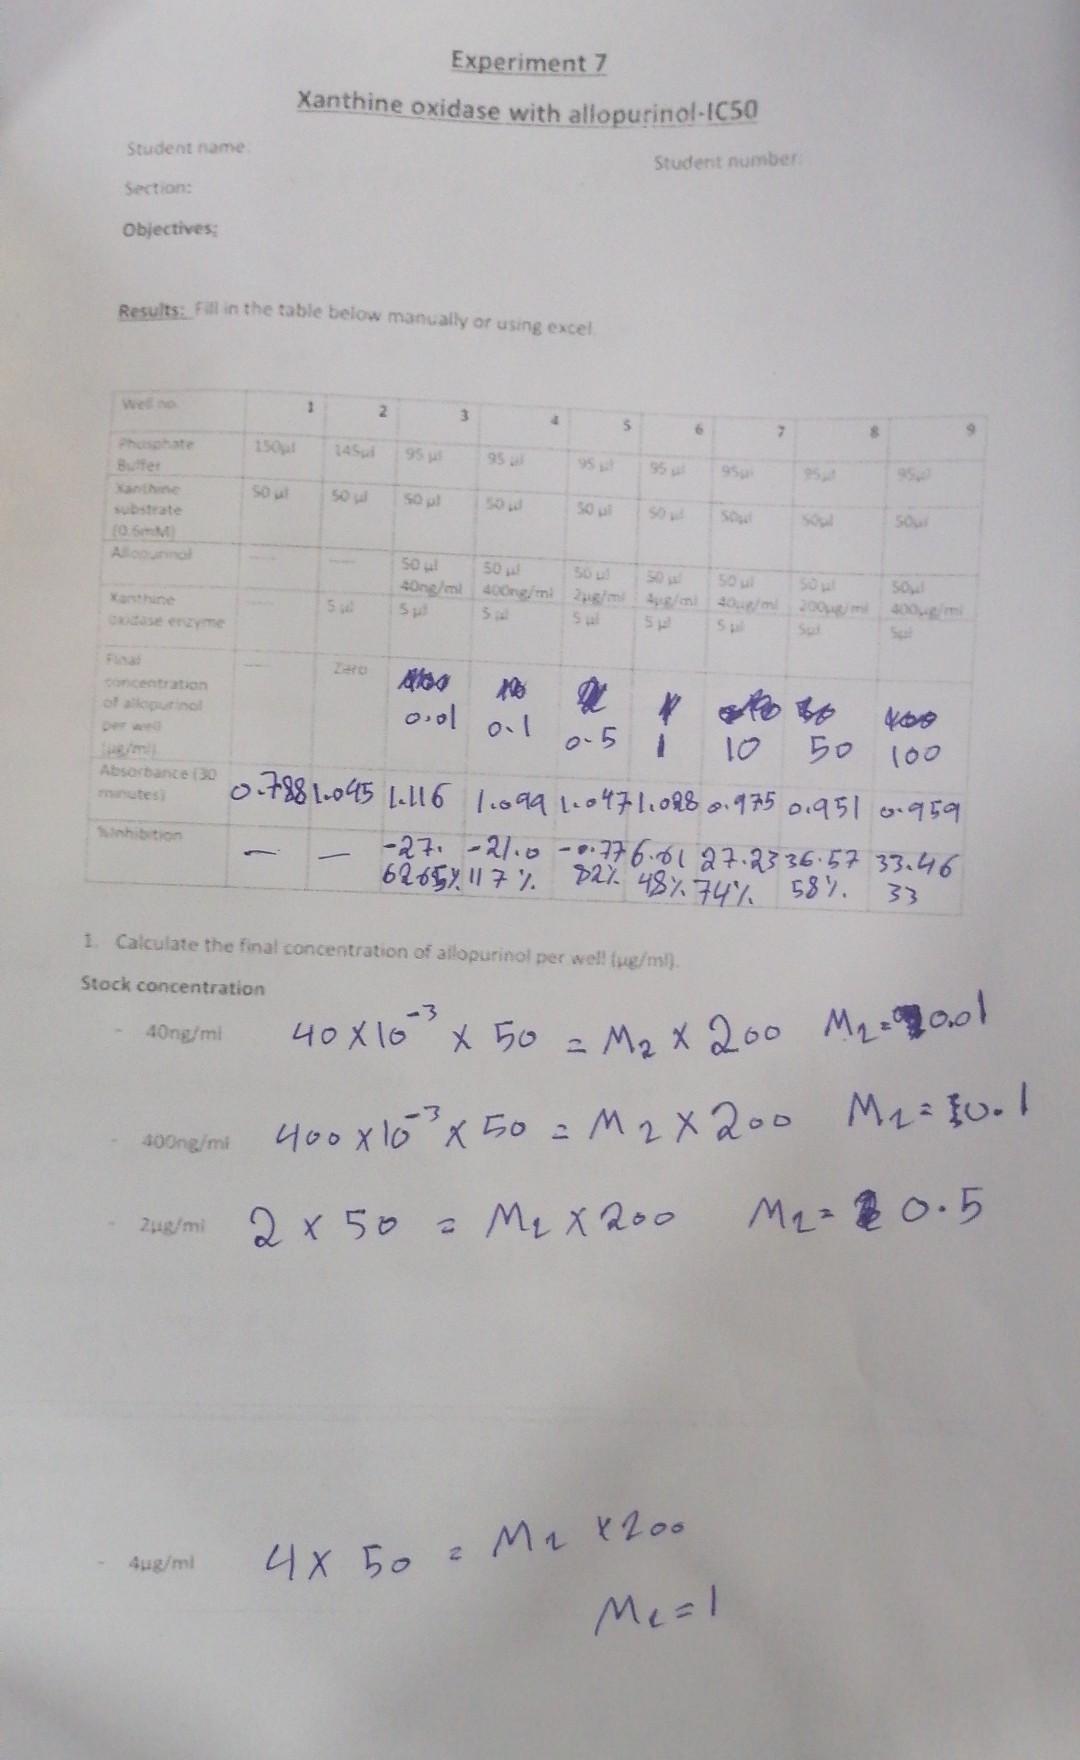 Experiment 7
Xanthine oxidase with allopurinol-IC50
Student name:
Student number:
Section:
Objectives:
Results: Fill in the table below manually or using excel
Well no. 1 2 3 4 5 6 7 8 9
Phosphate Buffer 150µl 145µl 95 µl 95 µl 95 µl 95 µl 95µl 95µl 95µl
Xanthine substrate (0.6mM) 50 µl 50 µl 50 µl 50 µl 50 µl 50 µl 50µl 50µl 50µl
Allopurinol ---- ---- 50 µl 40ng/ml 50 µl 400ng/ml 50 µl 2µg/ml 50 µl 4µg/ml 50 µl 40µg/ml 50 µl 200µg/ml 50µl 400µg/ml
Xanthine oxidase enzyme ---- 5 µl 5 µl 5 µl 5 µl 5 µl 5 µl 5µl 5µl
Final concentration of allopurinol per well (µg/ml) ---- Zero 0.01 0.1 0.5 1 10 50 400 100
Absorbance (30 minutes) 0.788 1.045 1.116 1.099 1.047 1.028 0.975 0.951 0.959
%Inhibition — — -27. -21.0 -0.77 6.61 27.23 36.57 33.46
117% 82% 48% 74% 58% 33
1. Calculate the final concentration of allopurinol per well (µg/ml).
Stock concentration
- 40ng/ml 40 X 10⁻³ X 50 = M2 X 200 M2 = 0.01
- 400ng/ml 400 X 10⁻³ X 50 = M2 X 200 M2 = 0.1
- 2µg/ml 2 X 50 = M2 X 200 M2 = 0.5
- 4µg/ml 4 X 50 = M2 X 200
M2 = 1